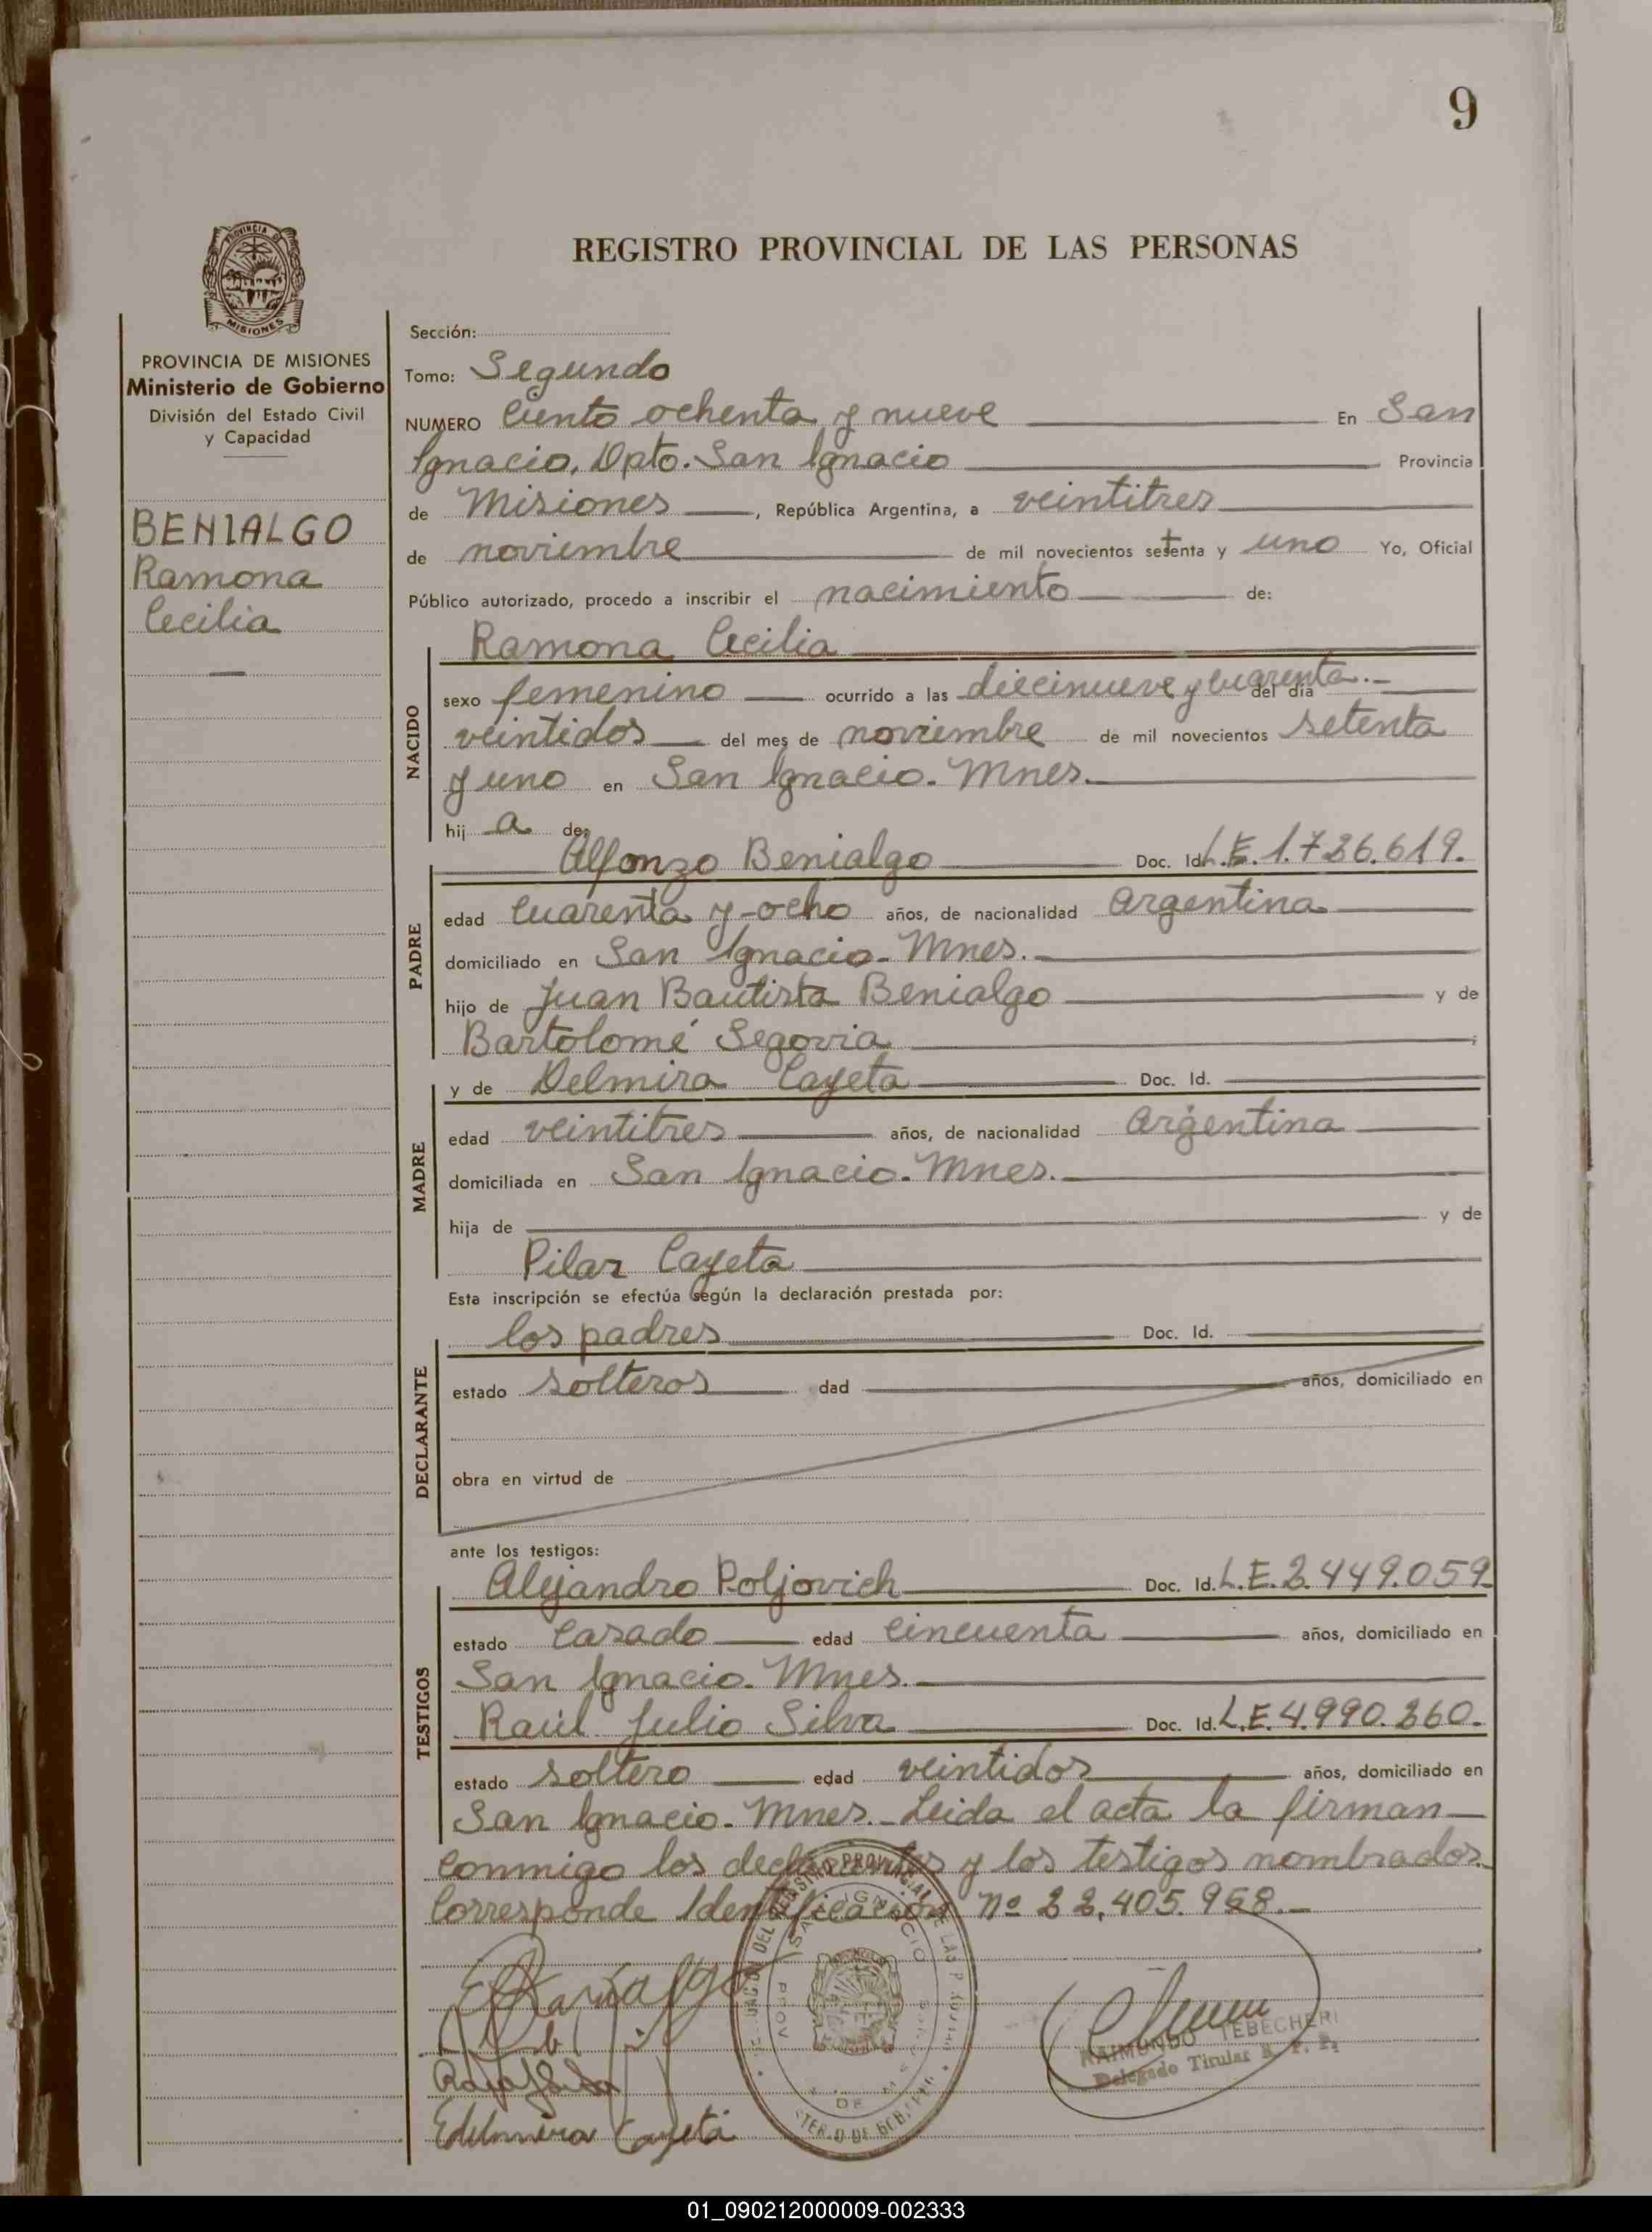 9
PROVINCIA DE
MISIONES
REGISTRO PROVINCIAL DE LAS PERSONAS
PROVINCIA DE MISIONES
Ministerio de Gobierno
División del Estado Civil
y Capacidad
BENIALGO
Ramona
Cecilia
Sección:
Tomo: Segundo
NUMERO Ciento ochenta y nueve En San
Ignacio, Dpto. San Ignacio Provincia
de Misiones, República Argentina, a veintitres
de noviembre de mil novecientos setenta y uno Yo, Oficial
Público autorizado, procedo a inscribir el nacimiento de:
NACIDO
Ramona Cecilia
sexo femenino ocurrido a las diecinueve y cuarenta.- del día
veintidos del mes de noviembre de mil novecientos setenta
y uno en San Ignacio. Mnes.
hij a de:
PADRE
Alfonzo Benialgo Doc. Id. L.E. 1.786.619.
edad cuarenta y ocho años, de nacionalidad Argentina
domiciliado en San Ignacio. Mnes.
hijo de Juan Bautista Benialgo y de
Bartolomé Segovia;
MADRE
y de Delmira Cayeta Doc. Id.
edad veintitres años, de nacionalidad Argentina
domiciliada en San Ignacio. Mnes.
hija de y de
Pilar Cayeta
Esta inscripción se efectúa según la declaración prestada por:
DECLARANTE
los padres Doc. Id.
estado solteros dad años, domiciliado en
obra en virtud de
ante los testigos:
TESTIGOS
Alejandro Poljovich Doc. Id. L.E. 2.449.059
estado Casado edad cincuenta años, domiciliado en
San Ignacio. Mnes.
Raúl Julio Silva Doc. Id. L.E. 4.990.360.
estado soltero edad veintidos años, domiciliado en
San Ignacio. Mnes. Leida el acta la firman
conmigo los declarantes y los testigos nombrados.
Corresponde Identificación nº 22.405.968.-
RAIMUNDO TEBECHERI
Delegado Titular R. P. P.
Edelmira Cayeta
01_090212000009-002333